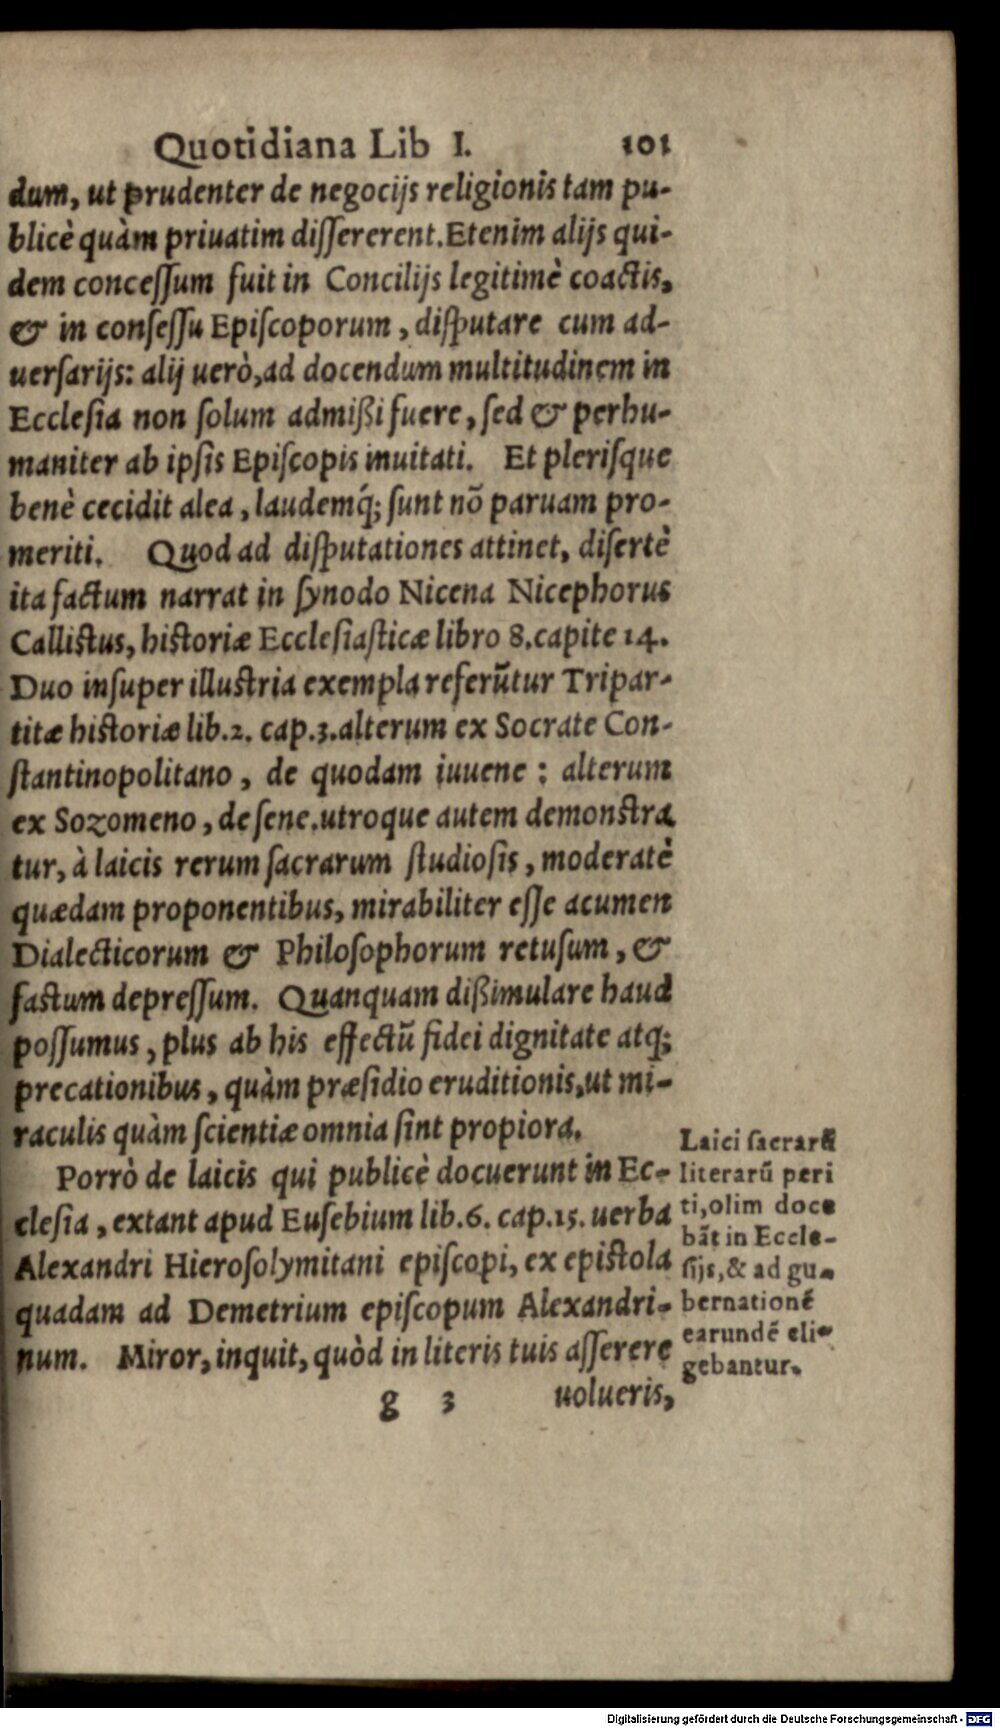 Quotidiana Lib I. 101
dum, ut prudenter de negocijs religionis tam pu-
blicè quàm priuatim diſſererent. Etenim alijs qui-
dem conceſſum fuit in Concilijs legitimè coactis,
& in conſeſſu Epiſcoporum, diſputare cum ad-
uerſarijs: alij uerò, ad docendum multitudinem in
Eccleſia non ſolum admißi fuere, ſed & perhu-
maniter ab ipſis Epiſcopis inuitati. Et pleriſque
benè cecidit alea, laudemq́; ſunt nõ paruam pro-
meriti. Quod ad diſputationes attinet, diſertè
ita factum narrat in ſynodo Nicena Nicephorus
Calliſtus, hiſtoriæ Eccleſiaſticæ libro 8. capite 14.
Duo inſuper illuſtria exempla referũtur Tripar-
titæ hiſtoriæ lib. 2. cap. 3. alterum ex Socrate Con-
ſtantinopolitano, de quodam iuuene: alterum
ex Sozomeno, de ſene. utroque autem demonſtra
tur, à laicis rerum ſacrarum ſtudioſis, moderatè
quædam proponentibus, mirabiliter eſſe acumen
Dialecticorum & Philoſophorum retuſum, &
faſtum depreſſum. Quanquam dißimulare haud
poſſumus, plus ab his effectũ fidei dignitate atq;
precationibus, quàm præſidio eruditionis, ut mi-
raculis quàm ſcientiæ omnia ſint propiora.
Porrò de laicis qui publicè docuerunt in Ec-
cleſia, extant apud Euſebium lib. 6. cap. 15. uerba
Alexandri Hieroſolymitani epiſcopi, ex epiſtola
quadam ad Demetrium epiſcopum Alexandri-
num. Miror, inquit, quòd in literis tuis aſſerere
g 3 uolueris,
Laici ſacrarũ
literarũ peri
ti, olim doce
bãt in Eccle-
ſijs, & ad gu-
bernationẽ
earundẽ eli-
gebantur.
Digitalisierung gefördert durch die Deutsche Forschungsgemeinschaft - DFG